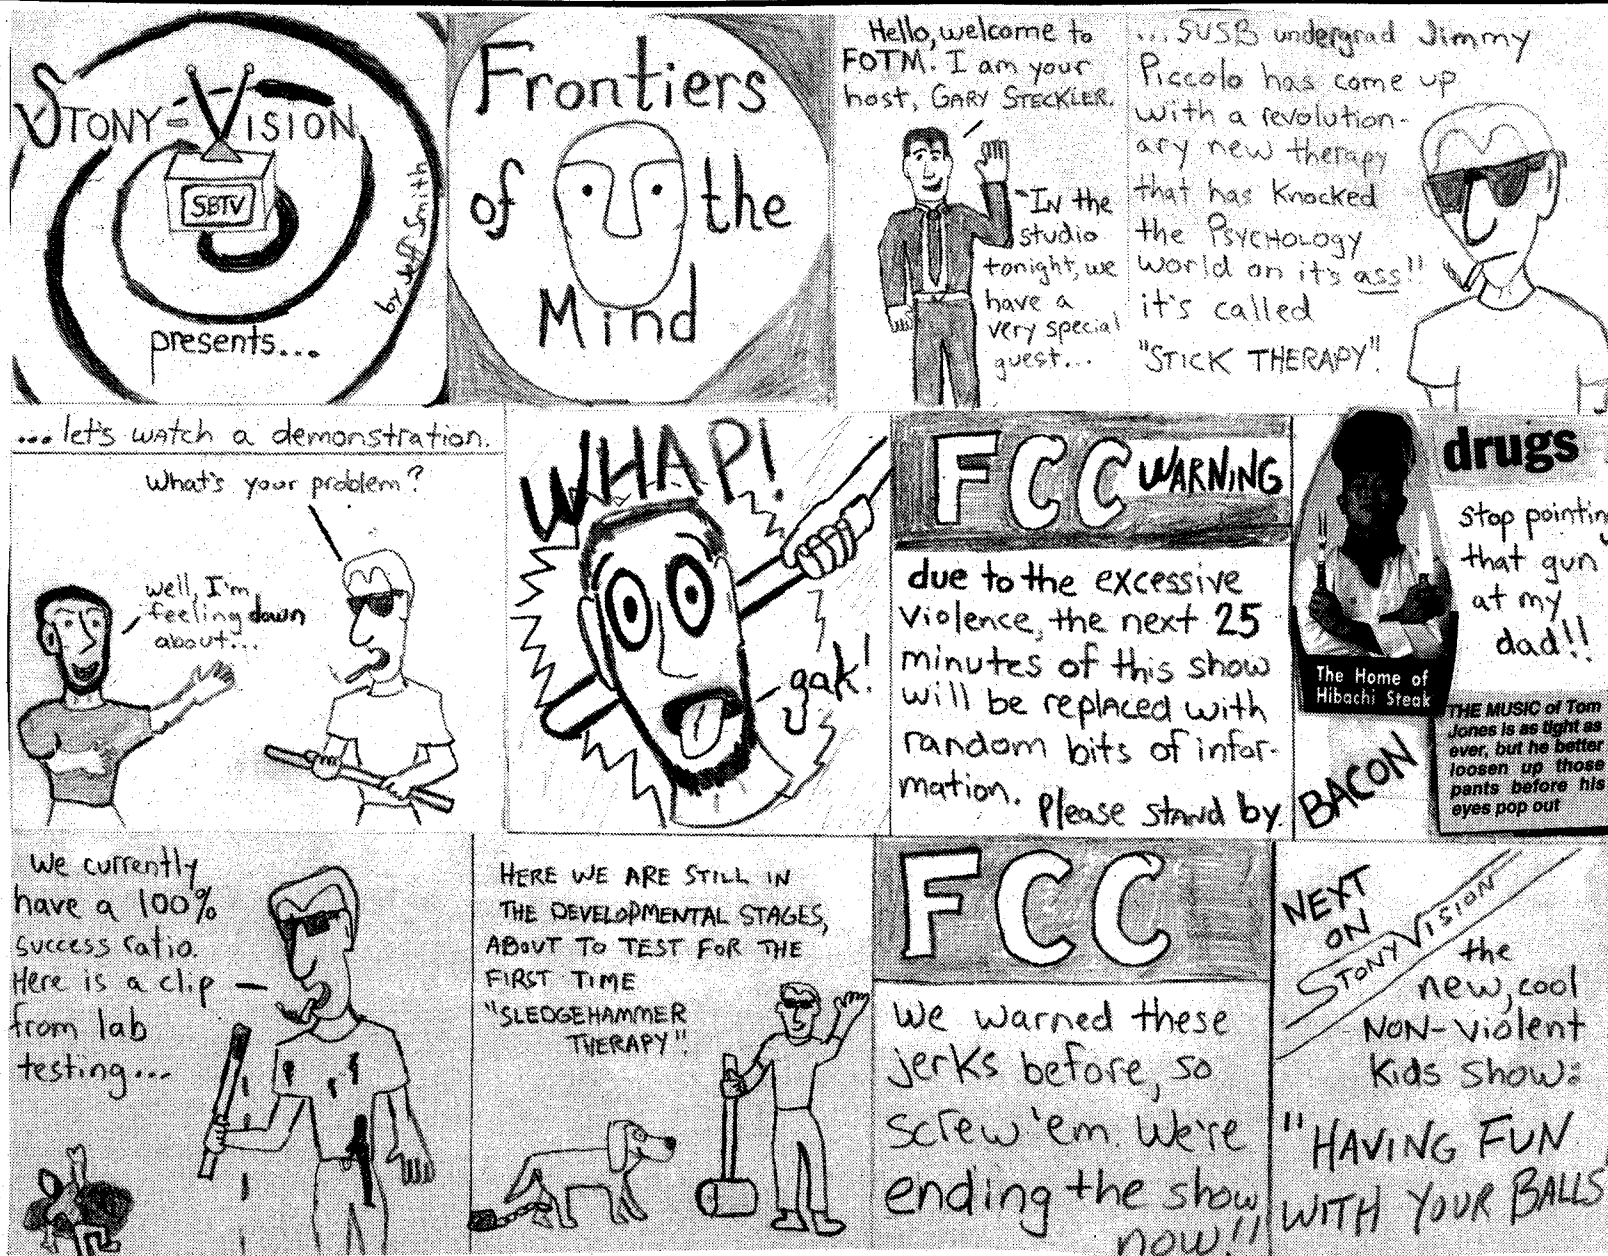 STONY-VISION
SBTV
by Jeff Smith
presents...
Frontiers
of the
Mind
Hello, welcome to
FOTM. I am your
host, GARY STECKLER.
IN the
studio
tonight, we
have a
very special
guest...
...SUSB undergrad Jimmy
Piccolo has come up
with a revolution-
ary new therapy
that has knocked
the PSYCHOLOGY
world on it's ass!!
it's called
"STICK THERAPY".
...let's watch a demonstration.
What's your problem?
well, I'm
feeling down
about...
WHAP!
gak!
FCC WARNING
due to the excessive
violence, the next 25
minutes of this show
will be replaced with
random bits of infor-
mation. Please stand by.
drugs
stop pointing
that gun
at my
dad!!
The Home of
Hibachi Steak
BACON
THE MUSIC of Tom
Jones is as tight as
ever, but he better
loosen up those
pants before his
eyes pop out
We currently
have a 100%
success ratio.
Here is a clip
from lab
testing...
HERE WE ARE STILL IN
THE DEVELOPMENTAL STAGES,
ABOUT TO TEST FOR THE
FIRST TIME
"SLEDGEHAMMER
THERAPY".
FCC
We warned these
jerks before, so
screw 'em. We're
ending the show
now!!
NEXT
ON
STONY VISION
the
new, cool
NON-violent
Kids show:
"HAVING FUN
WITH YOUR BALLS